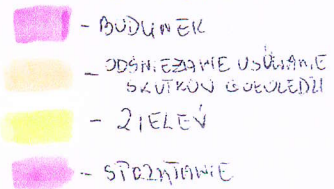 - BUDYNEK
- ODŚNIEŻANIE USUWANIE
SKUTKÓW GOŁOLEDZI
- ZIELEŃ
- SPRZĄTANIE